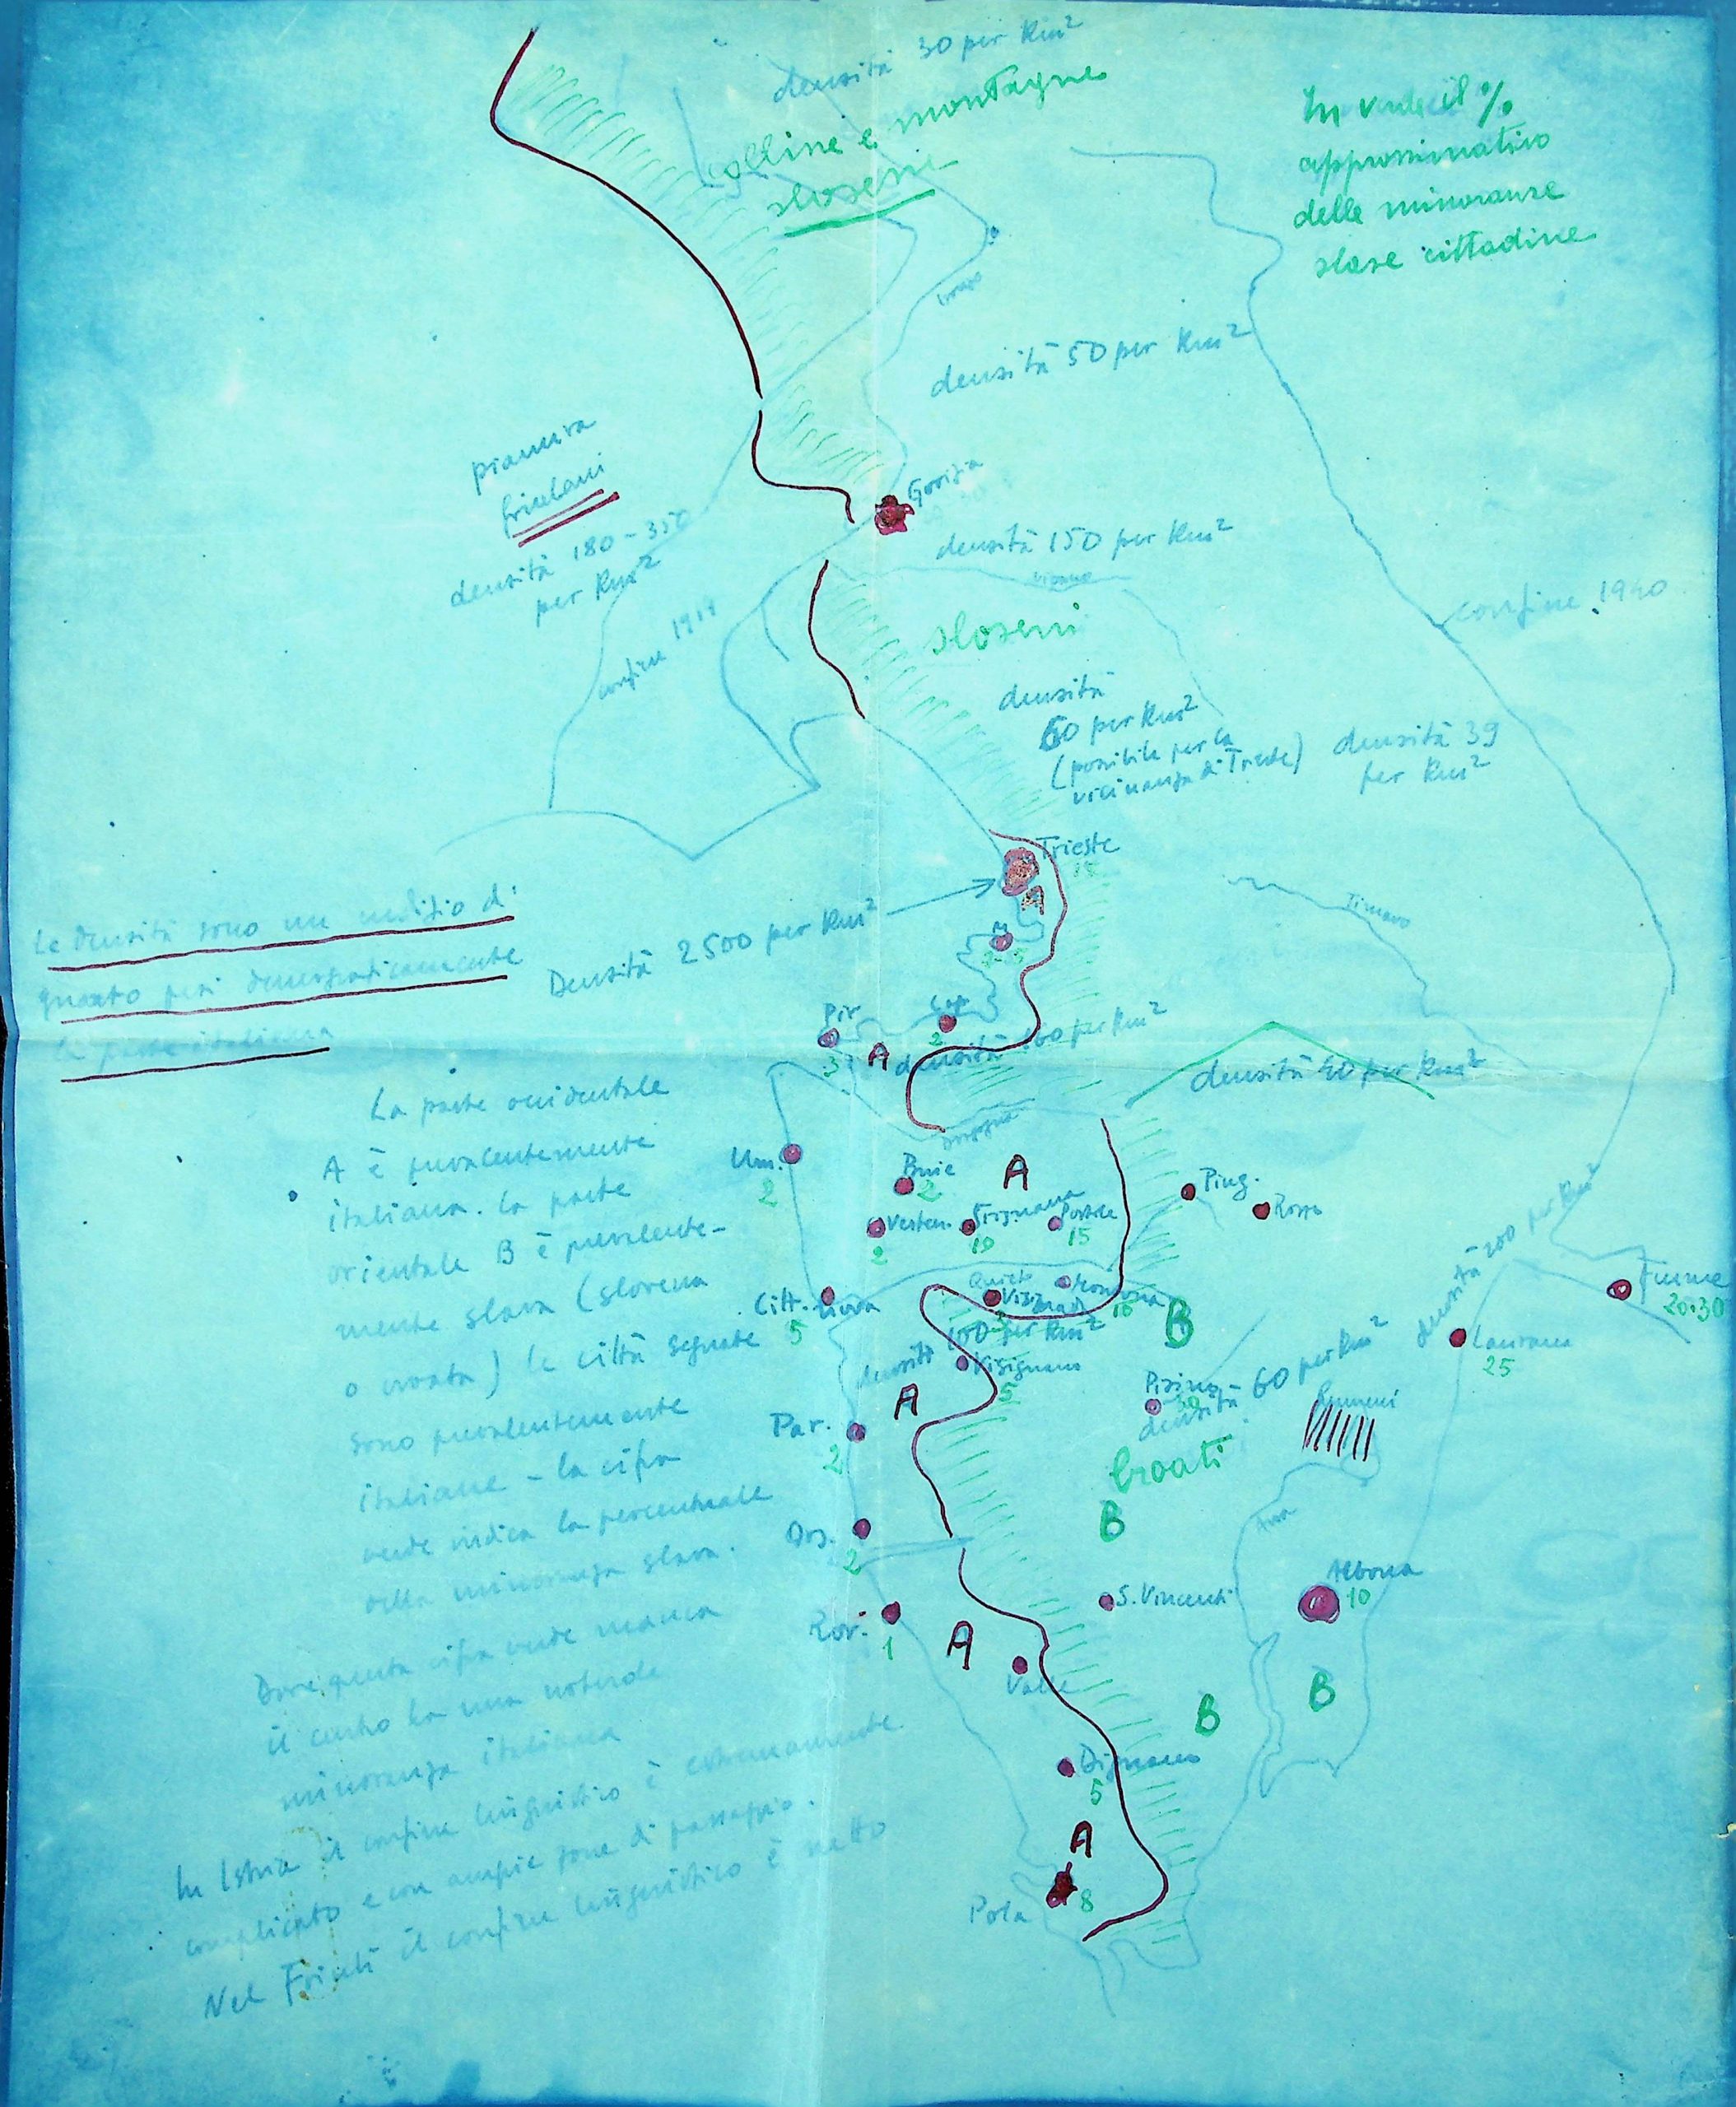 densità 30 per Km²
colline e montagne
slovene
In verde il %
approssimativo
delle minoranze
slave cittadine
Isonzo
densità 50 per Km²
pianura
friulani
densità 180-350
per Km²
Gorizia
densità 150 per Km²
Vipacco
confine 1914
sloveni
confine 1940
densità
60 per Km²
(possibile per la
vicinanza di Trieste)
densità 39
per Km²
Trieste
15
A
Densità 2500 per Km²
Timavo
M
Le densità sono un indizio di
quanto pesi demograficamente
la parte italiana
Pir.
3
A
Cap.
2
densità 160 per Km²
densità 40 per Km²
Dragogna
La parte occidentale
A è prevalentemente
italiana. La parte
orientale B è prevalente-
mente slava (slovena
o croata) le città segnate
sono prevalentemente
italiane - la cifra
verde indica la percentuale
della minoranza slava.
Dove questa cifra verde manca
il centro ha una notevole
minoranza italiana
In Istria il confine linguistico è estremamente
complicato e con ampie zone di passaggio.
Nel Friuli il confine linguistico è netto
Um.
2
Buie
2
A
Verten.
2
Grisignana
10
Portole
15
Ping.
Rozzo
Citt. nova
5
Quieto
Visinada
Montona
10
B
densità 100 per Km²
Visignano
5
A
densità 200 per Km²
Fiume
20-30
Laurana
25
Pisino
30
densità 60 per Km²
Rumeni
Par.
2
Croati
B
Ors.
2
Arsa
Albona
10
S. Vincenti
Rov.
1
A
Valle
B
B
Dignano
5
A
Pola
8